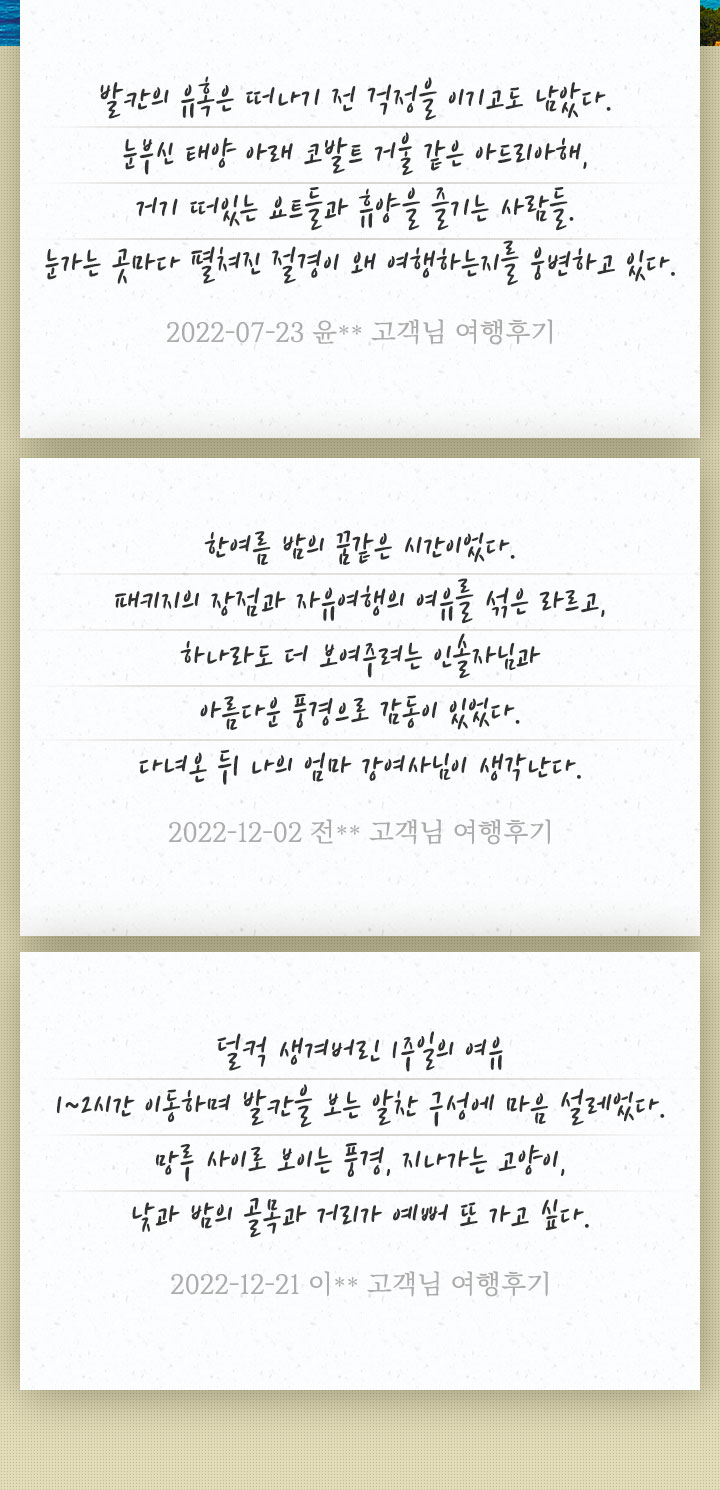 발칸의 유혹은 떠나기 전 걱정을 이기고도 남았다.
눈부신 태양 아래 코발트 거울 같은 아드리아해,
거기 떠있는 요트들과 휴양을 즐기는 사람들.
눈가는 곳마다 펼쳐진 절경이 왜 여행하는지를 웅변하고 있다.
2022-07-23 윤** 고객님 여행후기
한여름 밤의 꿈같은 시간이었다.
패키지의 장점과 자유여행의 여유를 섞은 라르고,
하나라도 더 보여주려는 인솔자님과
아름다운 풍경으로 감동이 있었다.
다녀온 뒤 나의 엄마 강여사님이 생각난다.
2022-12-02 전** 고객님 여행후기
덜컥 생겨버린 1주일의 여유
1~2시간 이동하며 발칸을 보는 알찬 구성에 마음 설레었다.
망루 사이로 보이는 풍경, 지나가는 고양이,
낮과 밤의 골목과 거리가 예뻐 또 가고 싶다.
2022-12-21 이** 고객님 여행후기